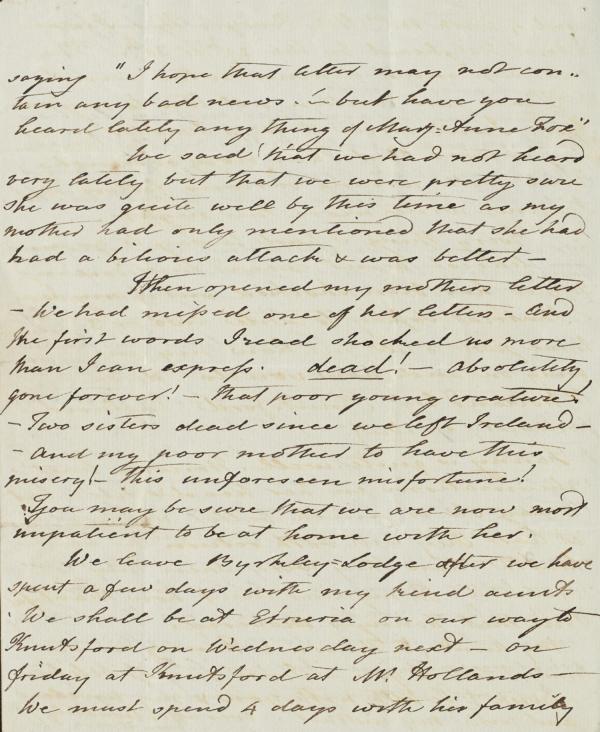 saying "I hope that letter may not con..
tain any bad news. - but have you
heard lately any thing of Mary-Anne Fox"
We said that we had not heard
very lately but that we were pretty sure
she was quite well by this time as my
mother had only mentioned that she had
had a bilious attack & was better -
I then opened my mothers letter
- We had missed one of her letters - and
the first words I read shocked us more
than I can express. dead! - absolutely
gone forever! - that poor young creature!
- Two sisters dead since we left Ireland -
- and my poor mother to have this
misery! - this unforeseen misfortune!
You may be sure that we are now most
impatient to be at home with her.
We leave Byrkley-Lodge after we have
spent a few days with my kind aunts
We shall be at Etruria on our way to
Knutsford on Wednesday next - on
friday at Knutsford at Mr. Hollands -
We must spend 4 days with his family